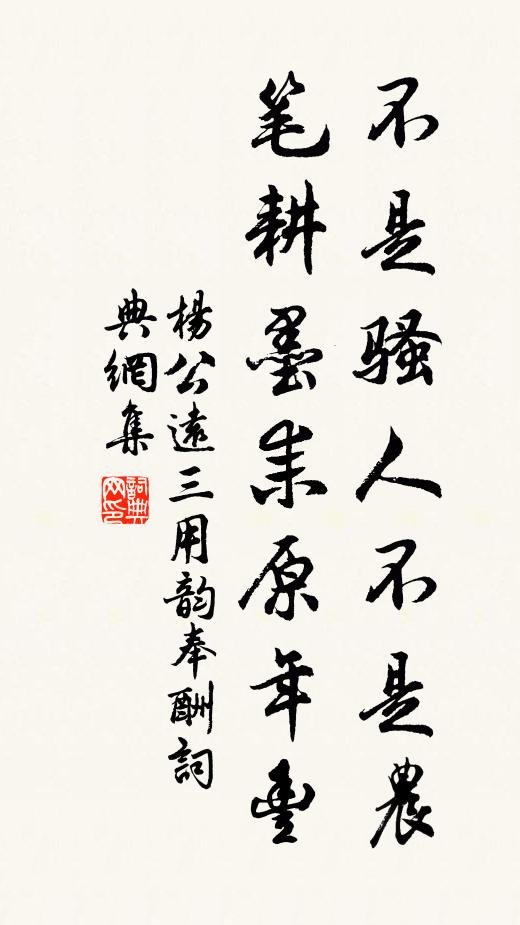 不是骚人不是農
笔耕墨耒原年豐
楊公遠三用韵奉酬詞
典網集
詞典
网印